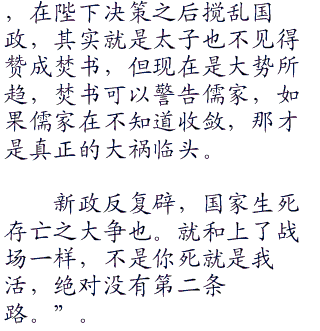 ，在陛下决策之后搅乱国
政，其实就是太子也不见得
赞成焚书，但现在是大势所
趋，焚书可以警告儒家，如
果儒家在不知道收敛，那才
是真正的大祸临头。
新政反复辟，国家生死
存亡之大争也。就和上了战
场一样，不是你死就是我
活，绝对没有第二条
路。”。